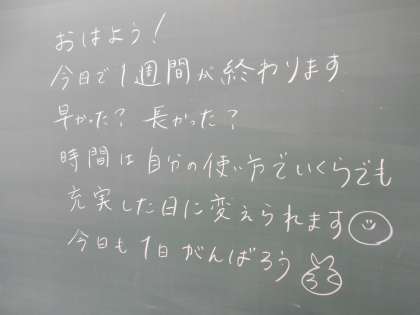 おはよう!
今日で1週間が終わります
早かった?長かった?
時間は自分の使い方でいくらでも
充実した日に変えられます
今日も1日がんばろう